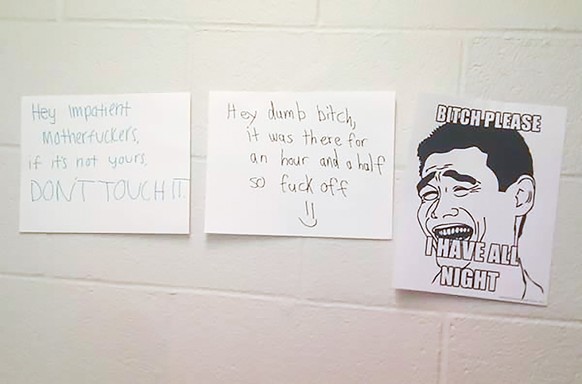 Hey Impatient
Motherfuckers,
if it's not yours,
DON'T TOUCH IT.
Hey dumb bitch,
it was there for
an hour and a half
so fuck off
BITCH PLEASE
I HAVE ALL
NIGHT